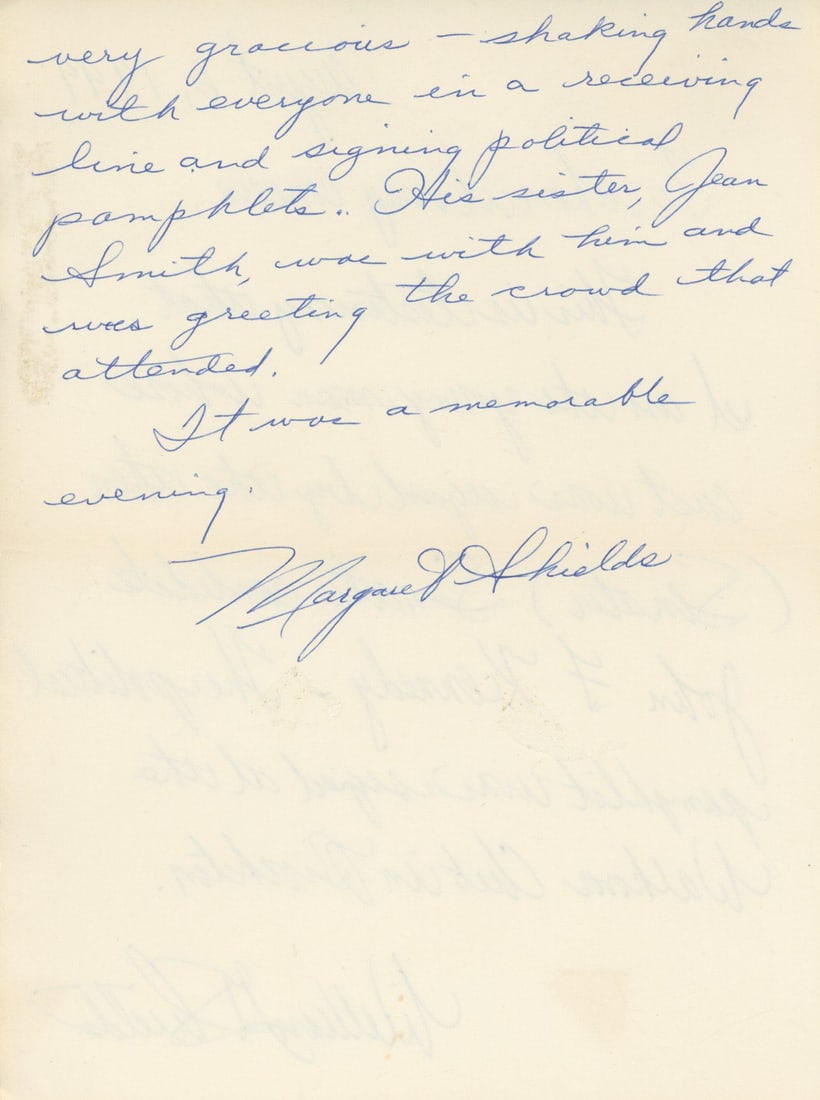 very gracious – shaking hands
with everyone in a receiving
line and signing political
pamphlets.. His sister, Jean
Smith, was with him and
was greeting the crowd that
attended.
It was a memorable
evening.
Margaret Shields